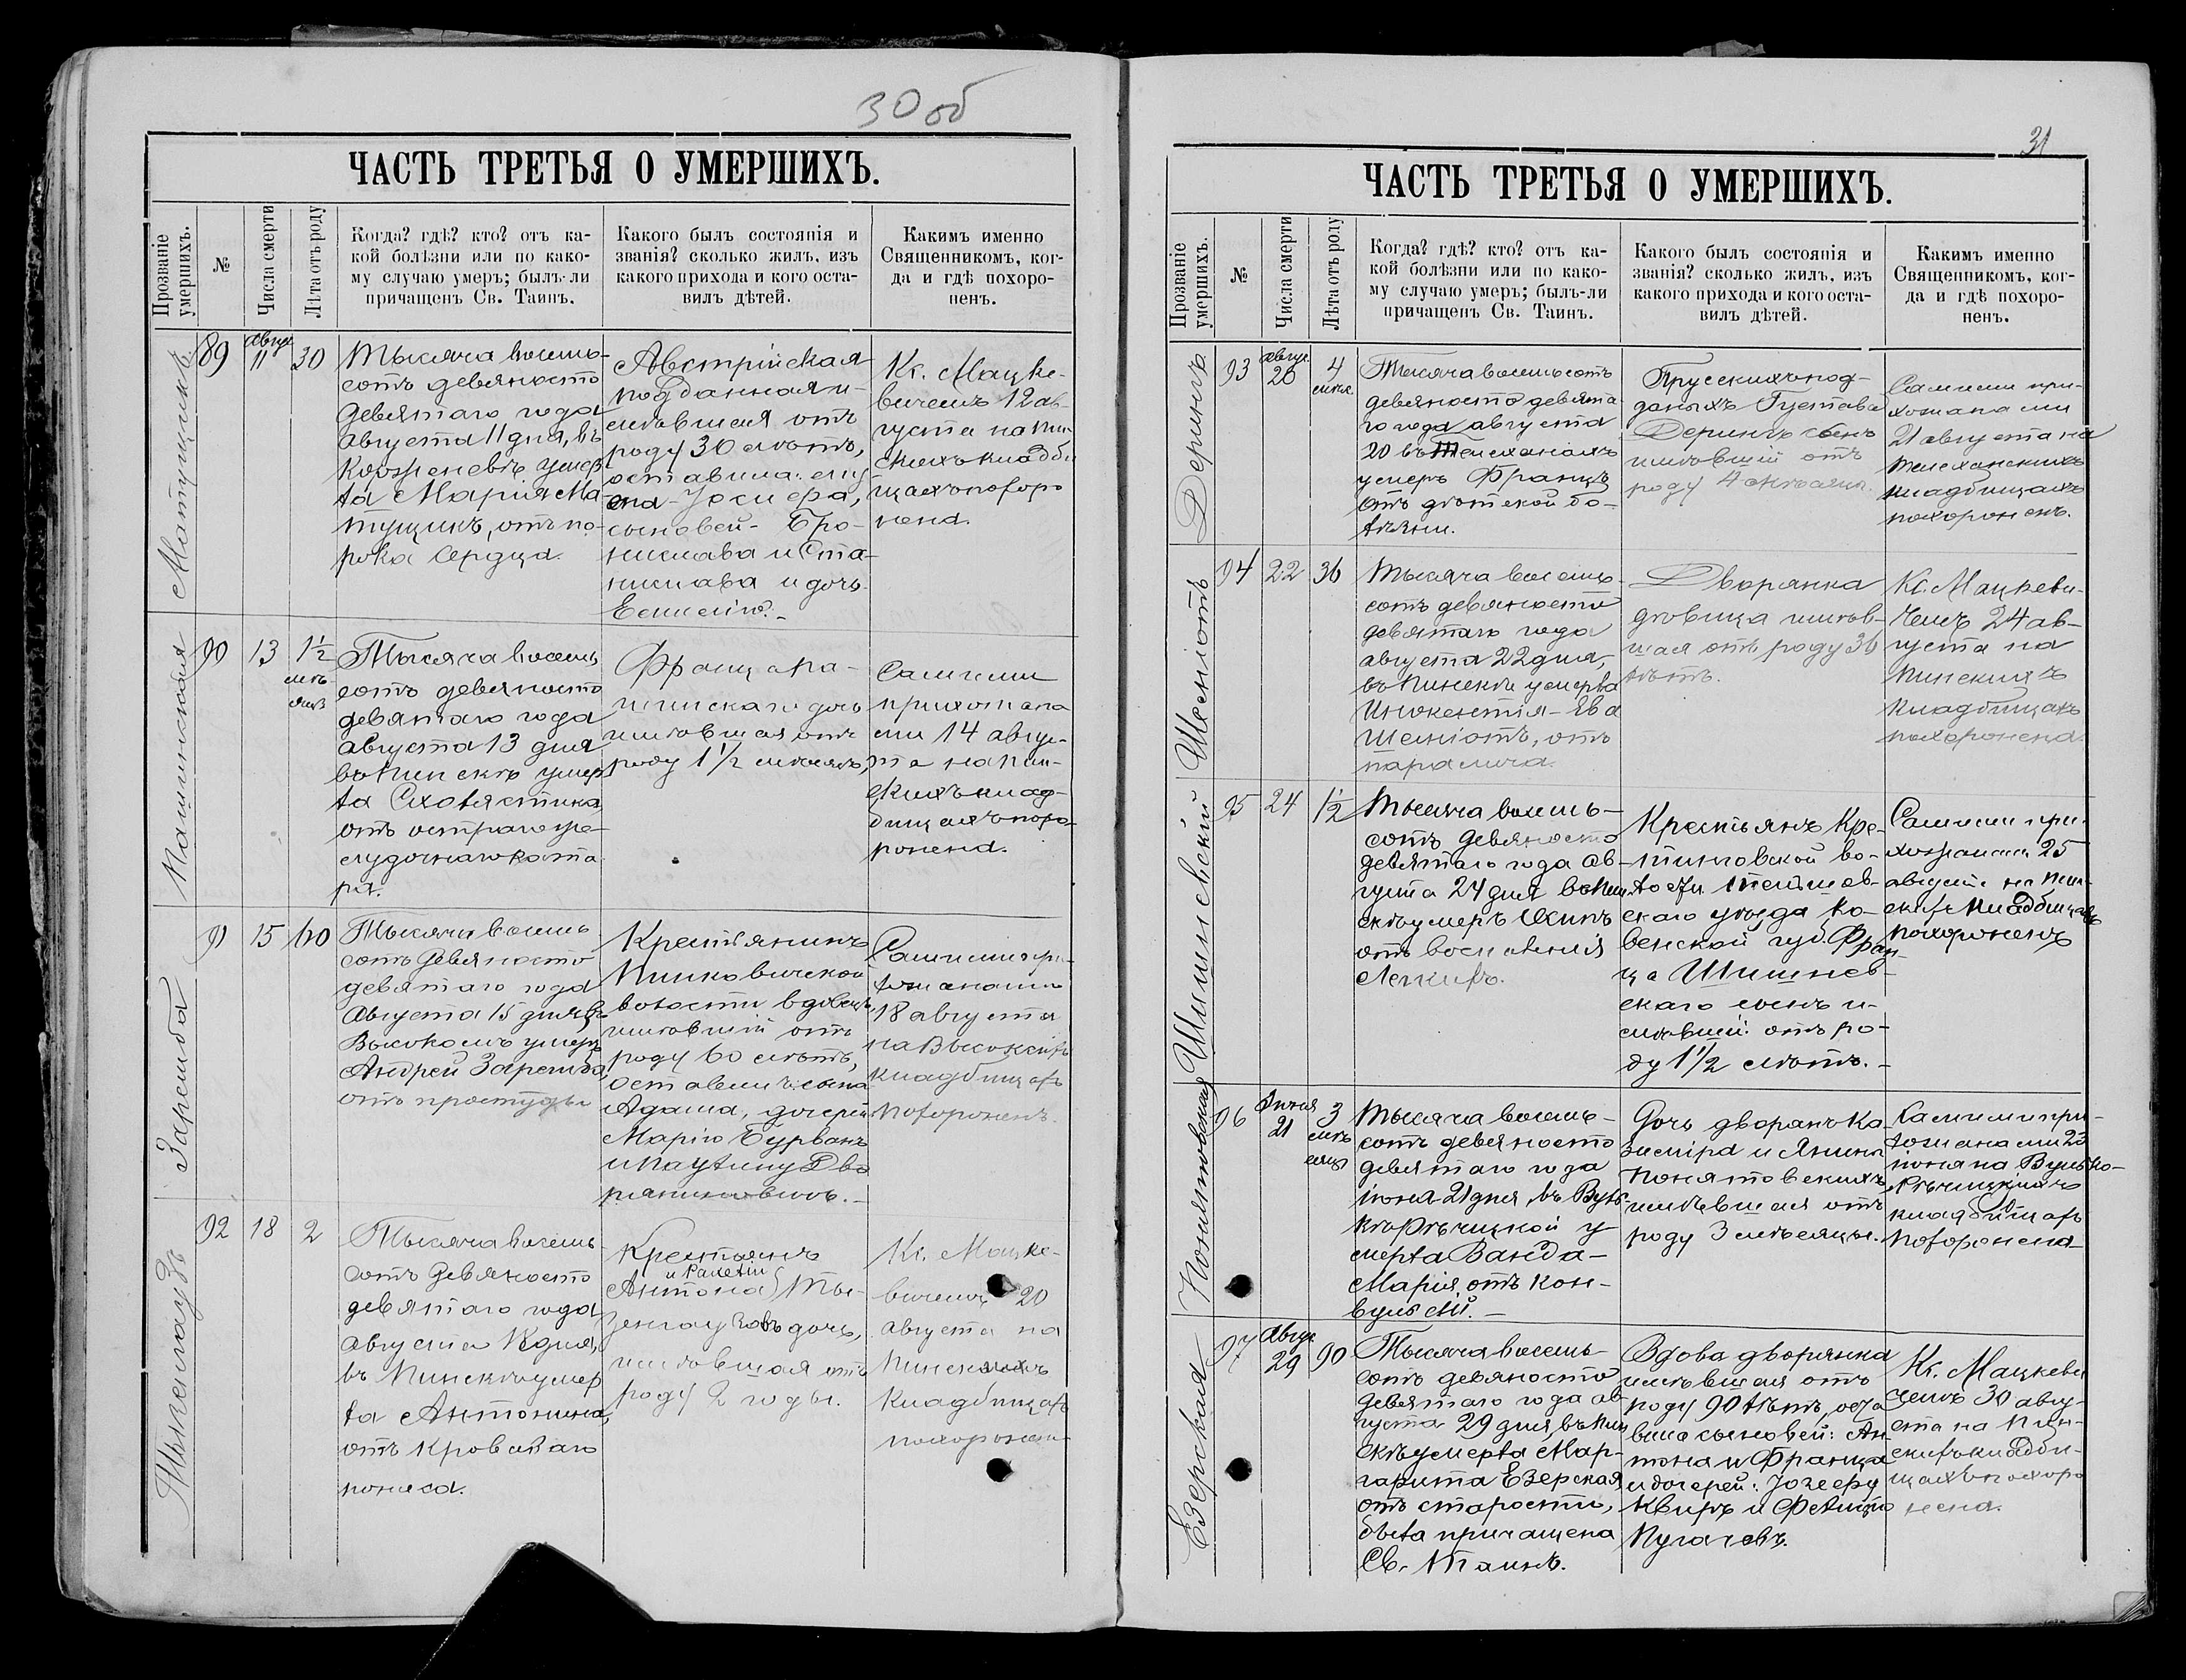 30 об
ЧАСТЬ ТРЕТЬЯ О УМЕРШИХЪ.
Прозваніе умершихъ.
№
Числа смерти
Лѣта отъ роду
Когда? гдѣ? кто? отъ ка-
кой болѣзни или по како-
му случаю умеръ; былъ-ли
причащенъ Св. Таинъ.
Какого былъ состоянія и
званія? сколько жилъ, изъ
какого прихода и кого оста-
вилъ дѣтей.
Какимъ именно
Священникомъ, ког-
да и гдѣ похоро-
ненъ.
Матущикъ
89
Авгус.
11
30
Тысяча восемь-
сотъ девяносто
девятаго года
августа 11 дня, въ
умер
ла Марія Ма-
тущикъ, отъ по-
рока сердца.
Австрійская
подданная и-
мѣвшая отъ
роду 30 лѣтъ,
оставила: му
жа Іосифа,
сыновей - Бро-
нислава и Ста-
нислава и дочь
Емилію.-
Кс. Мацке-
вичемъ 12 ав-
густа на Пин-
скихъ кладби
щахъ похоро
нена.
90
13
1½
мѣ-
сяца
Тысяча восемь
сотъ девяносто
девятаго года
августа 13 дня
въ Пинскѣ умер
ла Схоластика,
отъ остраго же-
лудочнаго ката
ра.
Франца Па-
шинскаго дочь
имѣвшая отъ
роду 1½ мѣсяца,
Самими
прихожана
ми 14 авгус-
та на Пин-
скихъ клад-
бищахъ похо-
ронена.
Заремба
91
15
60
Тысяча восемь
сотъ девяносто
девятаго года
Августа 15 дня въ
Высокомъ умеръ
Андрей Заремба,
отъ простуды
Крестьянинъ
Пинковичской
волости вдовецъ,
имѣвшій отъ
роду 60 лѣтъ,
оставилъ: сына
Адама, дочерей
Марію Бурванъ
и Паулину Дво
раниновичъ.-
Самими при
хожанами
18 августа
на Высокихъ
кладбищахъ
похороненъ.
Тызенгаузъ
92
18
2
Тысяча восемь
сотъ девяносто
девятаго года
августа 18 дня,
въ Пинскѣ умер
ла Антонина,
отъ кроваваго
поноса.
Крестьянъ
и
Антона Ты-
зенгаузовъ дочь,
имѣвшая отъ
роду 2 годы.
Кс. Мацке-
вичемъ 20
августа на
Пинскихъ
кладбищахъ
похоронена
31
ЧАСТЬ ТРЕТЬЯ О УМЕРШИХЪ.
Прозваніе умершихъ.
№
Числа смерти
Лѣта отъ роду
Когда? гдѣ? кто? отъ ка-
кой болѣзни или по како-
му случаю умеръ; былъ-ли
причащенъ Св. Таинъ.
Какого былъ состоянія и
званія? сколько жилъ, изъ
какого прихода и кого оста-
вилъ дѣтей.
Какимъ именно
Священникомъ, ког-
да и гдѣ похоро-
ненъ.
Дерингъ
93
Авгус.
20
4
Тысяча восемь сотъ
девяносто девята
го года августа
20 въ Телеханахъ
умеръ Францъ
отъ дѣтской бо-
лѣзни.
Прусскихъ под-
даныхъ Густава
Дерингъ сынъ
имѣвшій отъ
роду 4 мѣсяца.
Самими при-
хожанами
21 августа на
Телеханскихъ
кладбищахъ
похороненъ.
94
22
36
Тысяча восемь
сотъ девяносто
девятаго года
августа 22 дня,
въ Пинскѣ умерла
Инокентія - Ева
отъ
паралича.
Дворянка
дѣвица имѣв-
шая отъ роду 36
лѣтъ.
Кс. Мацкеви-
чемъ 24 ав-
густа на
Пинскихъ
кладбищахъ
похоронена.
Шишневскій
95
24
1½
Тысяча восемь-
сотъ девяносто
девятаго года ав-
густа 24 дня въ Пин
скѣ умеръ
отъ воспаленія
легкихъ.
Крестьянъ Кре-
тинговской во-
лости Тельшев-
скаго уѣзда Ко-
венской губ. Фран
ца Шишнев-
скаго сынъ и-
мѣвшій отъ ро-
ду 1½ лѣтъ.-
Самими при-
хожанами 25
августа на Пин-
скихъ кладбищахъ
похороненъ
Понятовская
96
Іюня
21
3
мѣ
сяца
Тысяча восемь-
сотъ девяносто
девятаго года
іюня 21 дня, въ Вуль-
кѣ Рѣчицкой у
мерла Ванда-
Марія, отъ кон-
вульсій.-
Дочь дворянъ Ка-
зиміра и Янины
Понятовскихъ
имѣвшая отъ
роду 3 мѣсяцы.
Самими при-
хожанами 23
іюня на Вулько-
Рѣчицкихъ
кладбищахъ
похоронена
Езерская
97
Авгус.
29
90
Тысяча восемь-
сотъ девяносто
девятаго года ав
густа 29 дня, въ Пин
скѣ умерла Мар-
гарита Езерская
отъ старости,
была причащена
Св. Таинъ.
Вдова дворянка
имѣвшая отъ
роду 90 лѣтъ, оста
вила сыновей: Ан-
тона и Франца
и дочерей: Іозефу
Квиръ и Фелицію
Пугачевъ.
Кс. Мацкеви
чемъ 30 авгу-
ста на Пин-
скихъ кладби-
щахъ похоро
нена.